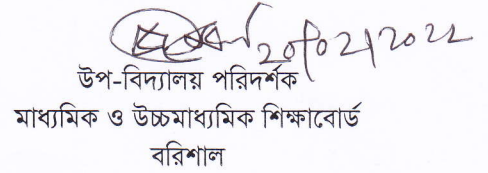 20/02/2022
উপ-বিদ্যালয় পরিদর্শক
মাধ্যমিক ও উচ্চমাধ্যমিক শিক্ষাবোর্ড
বরিশাল